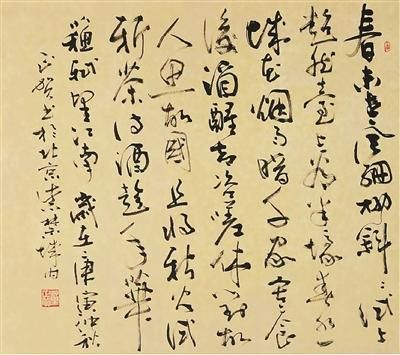 春未老風細柳斜斜试上
超然臺上看半壕春水一
城花烟雨暗千家寒食
後酒醒却咨嗟休對故
人思故國且将新火试
新茶诗酒趁年華
蘇轼望江南 歲在庚寅仲秋
书於北京紫禁城内